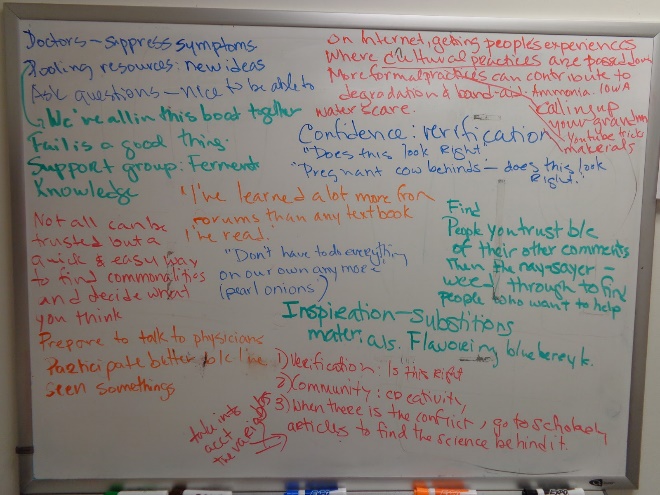 Doctors - suppress symptoms
Pooling resources: new ideas
Ask questions - nice to be able to
We're all in this boat together
Fail is a good thing.
Support group: Ferment
Knowledge
On Internet, getting people's experiences
Where cultural practices are passed down
More formal practices can contribute to
degradation & band-aid. Ammonia. IOWA
water scare.
calling up
your grandm
Youtube trick
materials
Confidence: verification
"Does this look Right"
"Pregnant cow behinds - does this look
Right."
"I've learned a lot more from
forums than any textbook
I've read."
Not all can be
trusted but a
quick & easy way
to find commonalities
and decide what
you think
"Don't have to do everything
on our own any more"
(pearl onions)
Find
People you trust b/c
of their other comments
Then the nay-sayer -
weed through to find
people who want to help
Inspiration - Substitions
materials. Flavoring blueberry k.
Prepare to talk to physicians
Participate better b/c I've
seen somethings
1) Verification: Is this right
2) Community: creativity,
3) When there is the conflict, go to scholarly
articles to find the science behind it.
take into
acct
the variables
EXPO